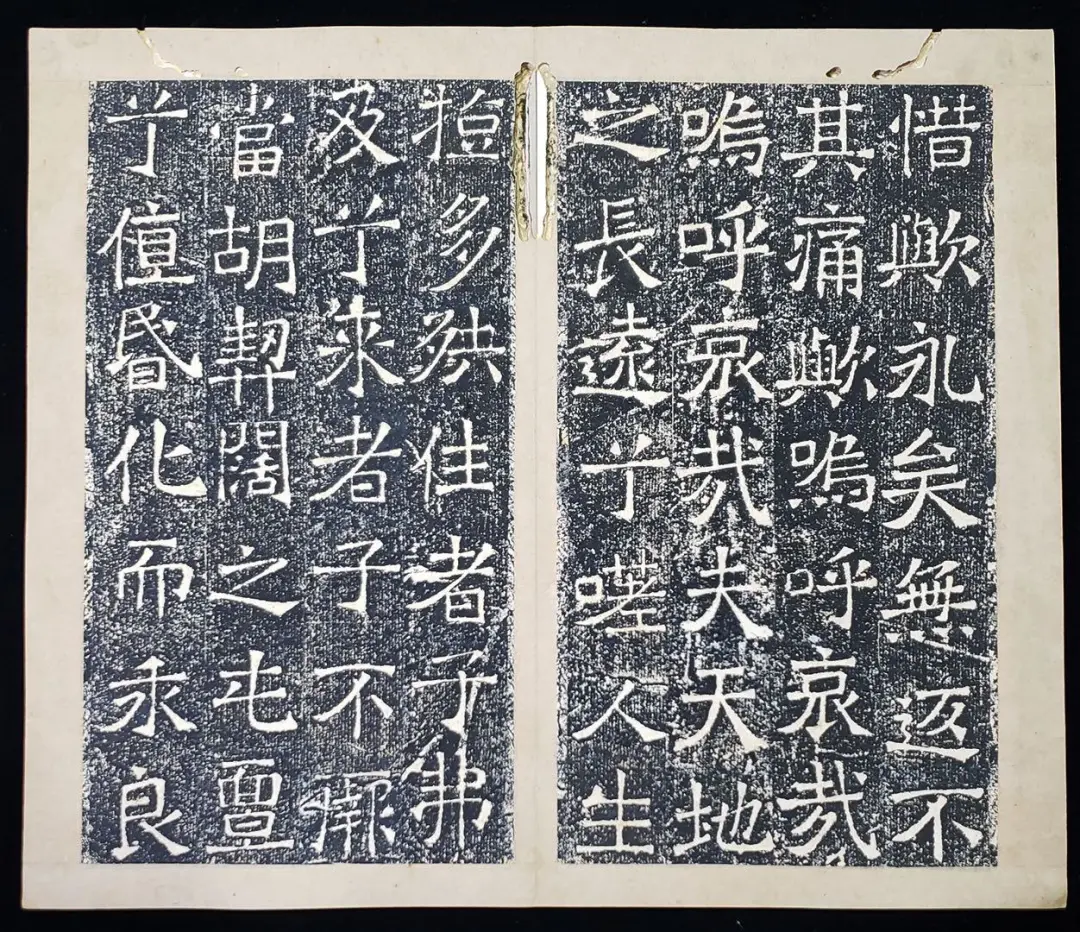 惜歟永矣無返不
其痛歟嗚呼哀哉
嗚呼哀哉夫天地
之長遠兮嗟人生
短多殃往者子弗
及兮來者子不
當胡契闊之屯亶
兮昏化而良